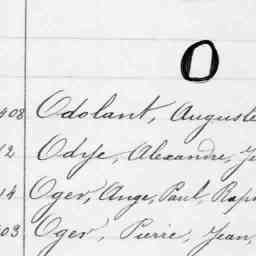 O
408 Odolant, Auguste
12 Odye, Alexandre, Je
14 Oger, Ange, Paul, Rap
503 Oger, Pierre, Jean,